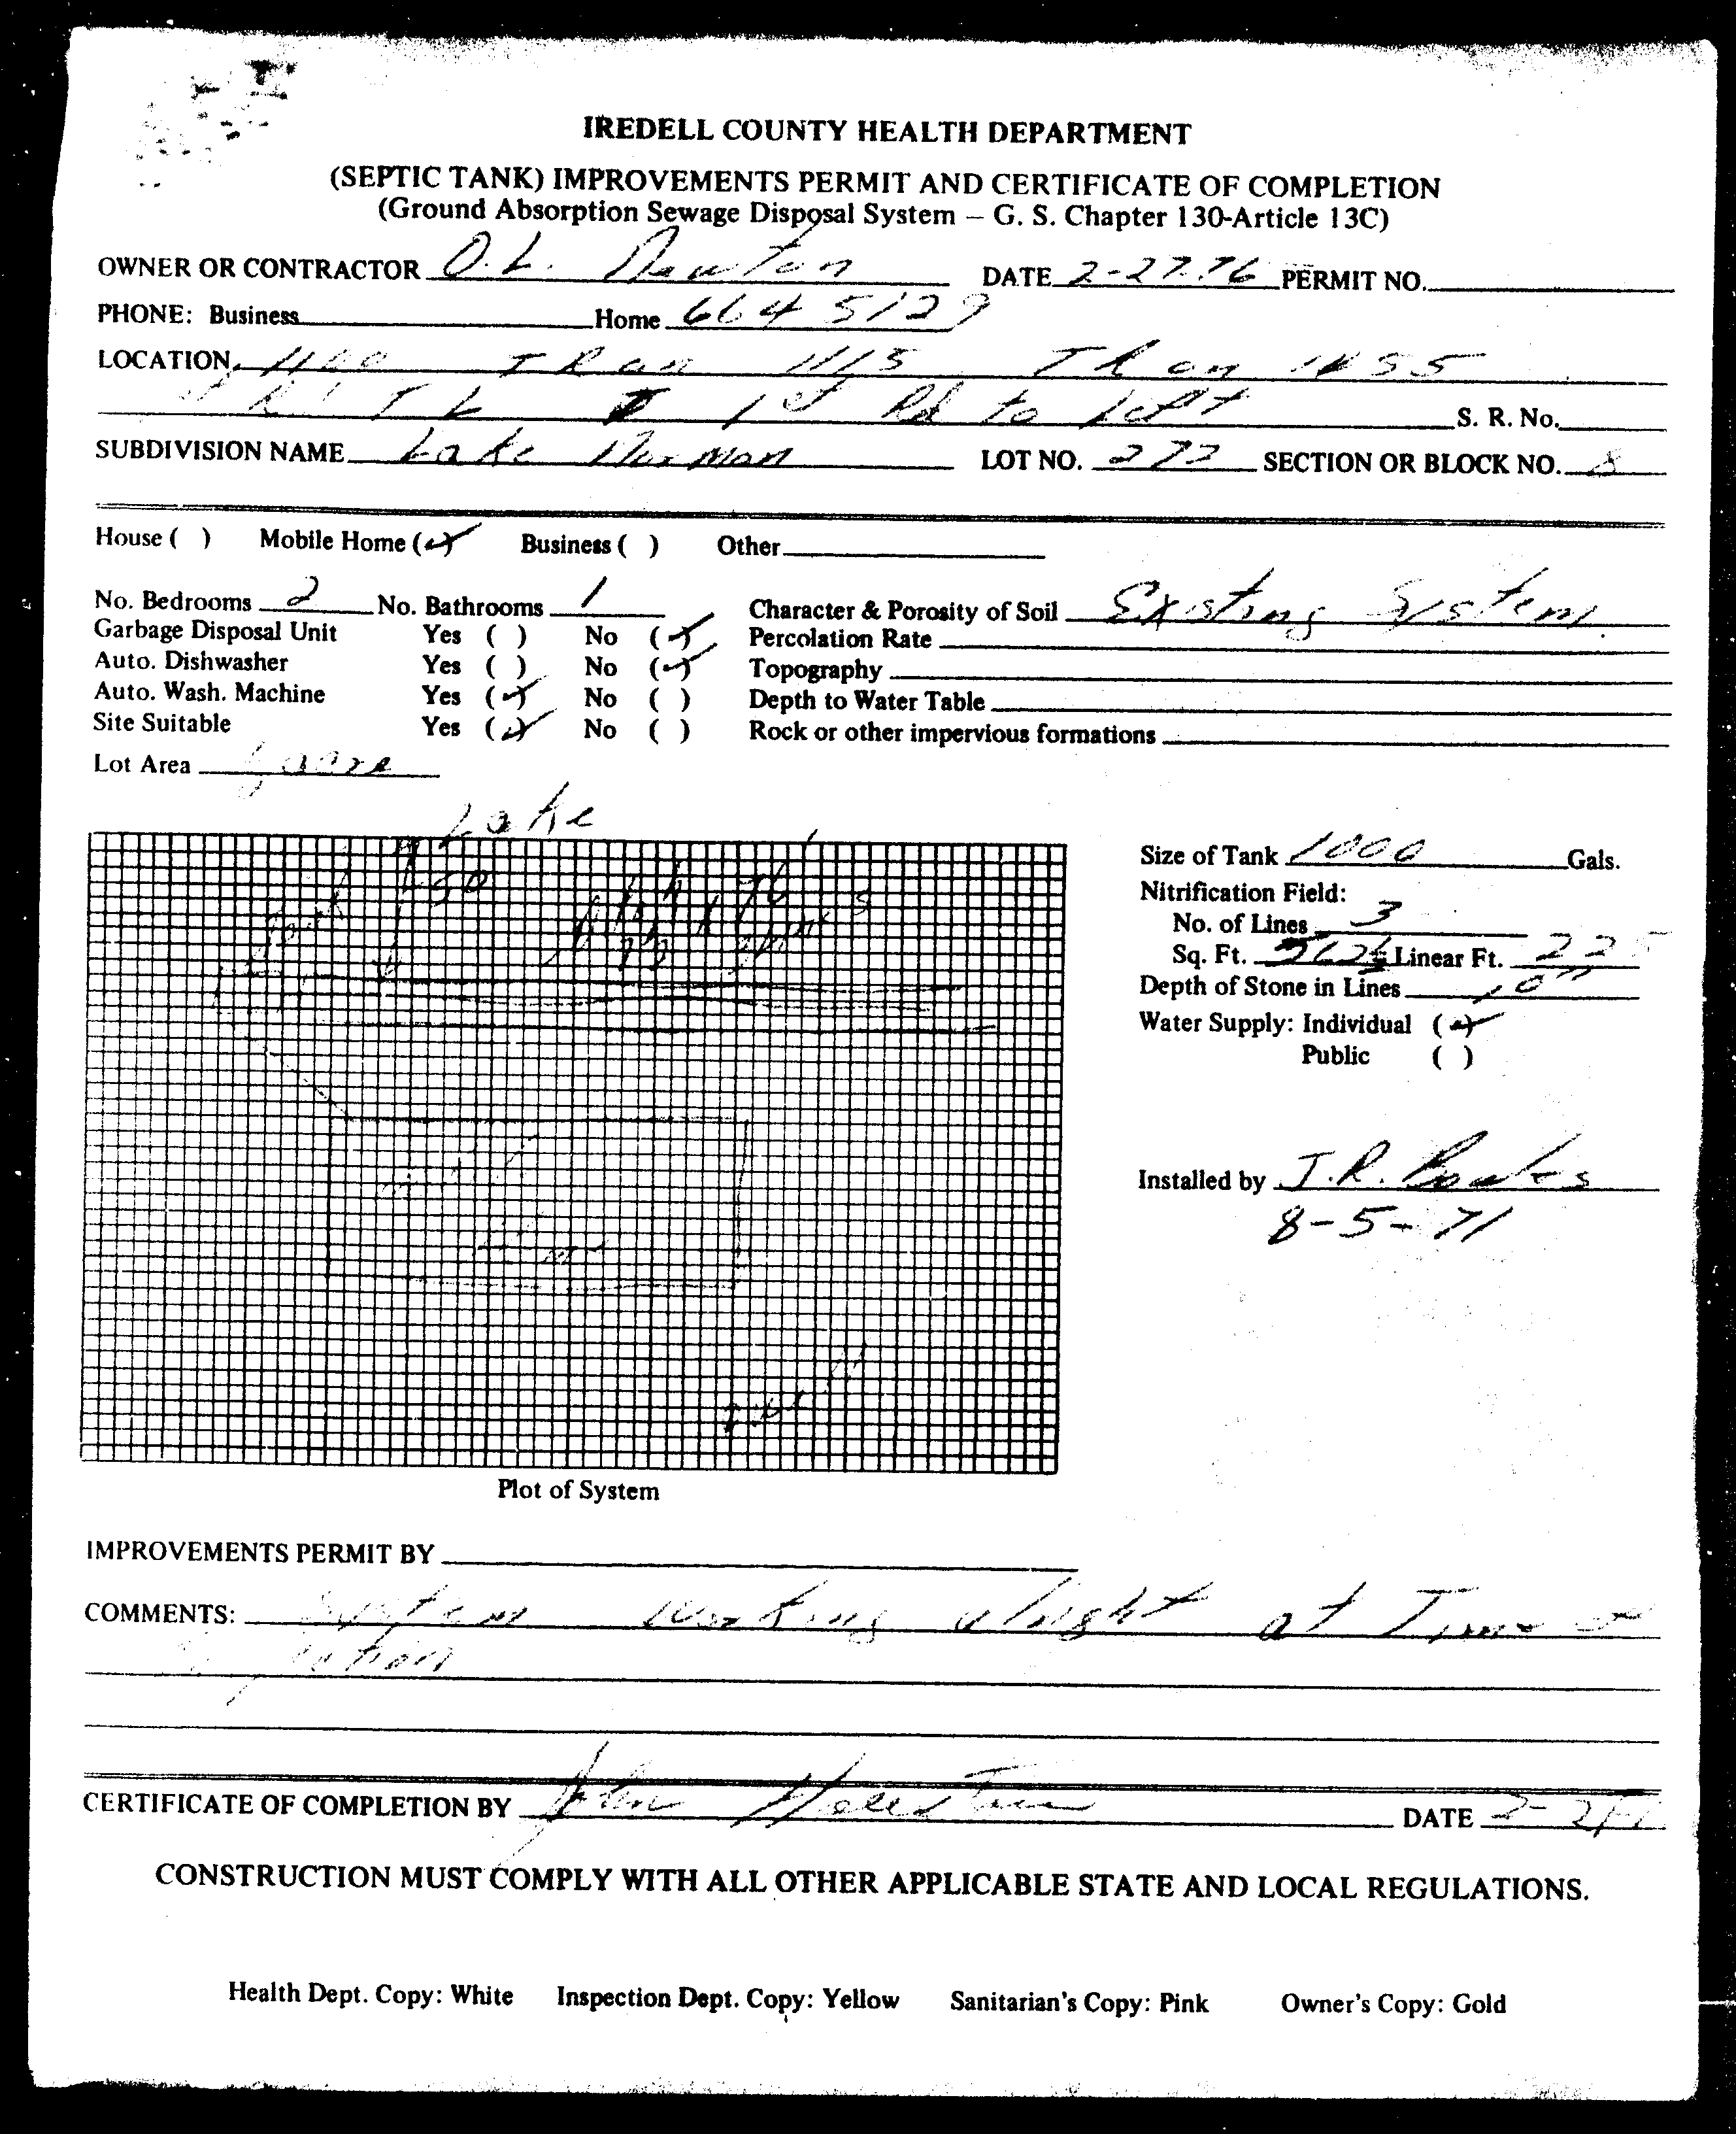 IREDELL COUNTY HEALTH DEPARTMENT
(SEPTIC TANK) IMPROVEMENTS PERMIT AND CERTIFICATE OF COMPLETION
(Ground Absorption Sewage Disposal System – G. S. Chapter 130-Article 13C)
OWNER OR CONTRACTOR O.L. Newton DATE 2-27-76 PERMIT NO.
PHONE: Business Home 664 5129
LOCATION TR on 1115 TR on
TL 1st Rd to left S. R. No.
SUBDIVISION NAME Lake Norman LOT NO. 272 SECTION OR BLOCK NO. 8
House ( ) Mobile Home (✓) Business ( ) Other
No. Bedrooms 2 No. Bathrooms 1 Character & Porosity of Soil Existing System
Garbage Disposal Unit Yes ( ) No (✓) Percolation Rate
Auto. Dishwasher Yes ( ) No (✓) Topography
Auto. Wash. Machine Yes (✓) No ( ) Depth to Water Table
Site Suitable Yes (✓) No ( ) Rock or other impervious formations
Lot Area
Lake
50
Size of Tank 1000 Gals.
Nitrification Field:
No. of Lines 3
Sq. Ft. Linear Ft. 225
Depth of Stone in Lines 10"
Water Supply: Individual (✓)
Public ( )
Installed by J.R.
8-5-71
Plot of System
IMPROVEMENTS PERMIT BY
COMMENTS: System working alright at Time
CERTIFICATE OF COMPLETION BY John DATE
CONSTRUCTION MUST COMPLY WITH ALL OTHER APPLICABLE STATE AND LOCAL REGULATIONS.
Health Dept. Copy: White Inspection Dept. Copy: Yellow Sanitarian's Copy: Pink Owner's Copy: Gold